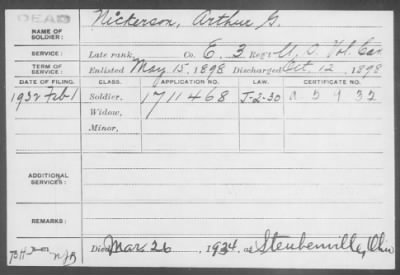 DEAD
NAME OF SOLDIER: Nickerson, Arthur G.
SERVICE: Late rank, Co. E, 3 Reg't U. S. Vol Cav
TERM OF SERVICE: Enlisted May 15, 1898 Discharged Oct. 12, 1898
DATE OF FILING. CLASS. APPLICATION NO. LAW. CERTIFICATE NO.
1932 Feb 1 Soldier, 1711468 J-2-30
Widow,
Minor,
ADDITIONAL SERVICES:
REMARKS:
Died Mar. 26, 1934, at Steubenville, Ohio